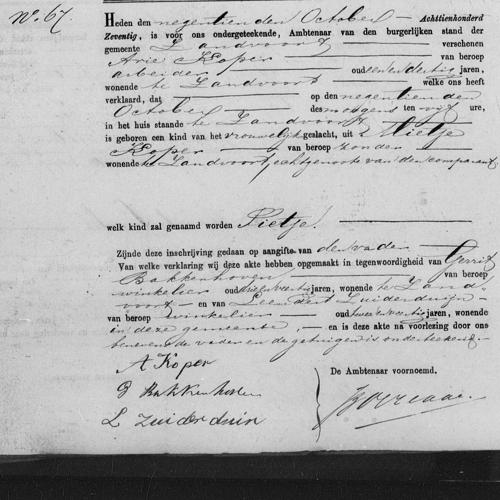 No. 67.
Heden den negentienden October — Achttienhonderd
Zeventig, is voor ons ondergeteekende, Ambtenaar van den burgerlijken stand der
gemeente Zandvoort verschenen
Arie Koper van beroep
arbeider oud eenendertig jaren,
wonende te Zandvoort welke ons heeft
verklaard, dat op den negentienden
October des morgens ten vijf ure,
in het huis staande te Zandvoort
is geboren een kind van het vrouwelijk geslacht, uit Pietje
Koper van beroep zonder
wonende te Zandvoort, echtgenoote van den comparant
welk kind zal genaamd worden Pietje.
Zijnde deze inschrijving gedaan op aangifte van den vader
Van welke verklaring wij deze akte hebben opgemaakt in tegenwoordigheid van Gerrit
Bakkenhoven van beroep
winkelier oud drieenveertig jaren, wonende te Zand-
voort — en van Leendert Zuiderduijn —
van beroep winkelier oud tweeenveertig jaren, wonende
in deze gemeente, — en is deze akte na voorlezing door ons
benevens de vader en de getuigen is onderteekend.
A Koper
De Ambtenaar voornoemd.
G Bakkenhoven
L Zuiderduin